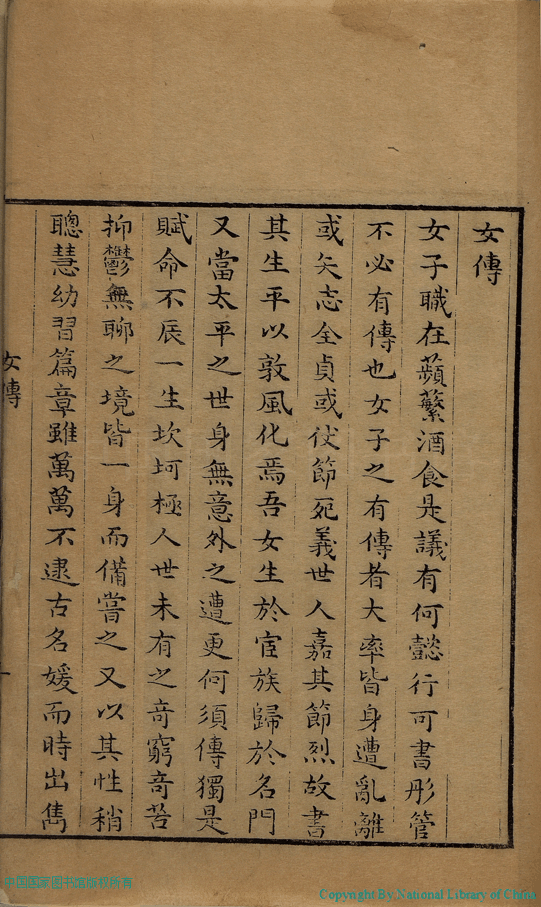 女傳
女子職在蘋蘩酒食是議有何懿行可書彤管
不必有傳也女子之有傳者大率皆身遭亂離
或矢志全貞或伏節死義世人嘉其節烈故書
其生平以敦風化焉吾女生於宦族歸於名門
又當太平之世身無意外之遭更何須傳獨是
賦命不辰一生坎坷極人世未有之奇窮奇苦
抑鬱無聊之境皆一身而備嘗之又以其性稍
聰慧幼習篇章雖萬萬不逮古名媛而時出雋
女傳
一
中国国家图书馆版权所有
Copyright By National Library of China